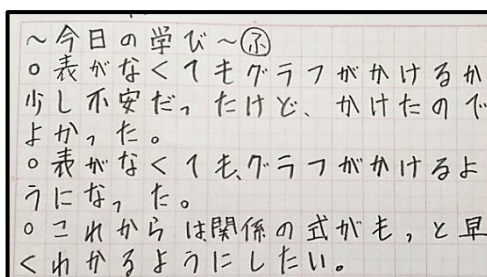 ~今日の学び~㋫
○表がなくてもグラフがかけるか
少し不安だったけど、かけたので
よかった。
○表がなくても、グラフがかけるよ
うになった。
○これからは関係の式がもっと早
くわかるようにしたい。